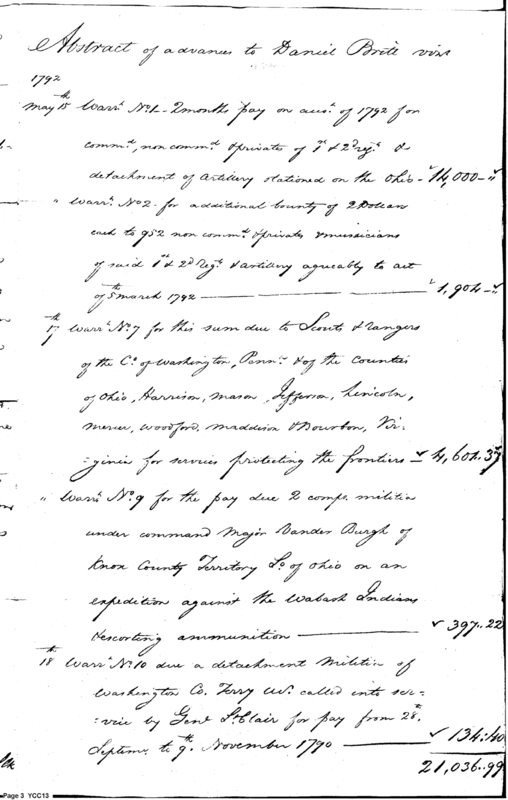 Abstract of advances to Daniel Britt viz
1792
May 15th Warrt. No. 1 - 2 months pay on acct. of 1792 for
commd., non commd. & privates of 1st & 2d regt. &
detachment of Artillery stationed on the Ohio - 14,000 - "
" Warrt. No 2 - for additional bounty of 2 Dollars
each to 952 non commd. & privates & musicians
of said 1st & 2d Regt. & artillery agreeably to act
of 5th march 1792 1,904 - "
17th Warrt. No. 7 for this sum due to Scouts & rangers
of the Co. of Washington, Pennn. & of the Counties
of Ohio, Harrison, Mason, Jefferson, Lincoln,
Mercer, Woodford, Maddison & Bourbon, Vir-
-ginia for services protecting the frontiers - 4,601.37
" Warrt. No. 9 for the pay due 2 comps. militia
under command Major Vander Burgh of
Knox County Territory So. of Ohio on an
expedition against the Wabash Indians
& escorting ammunition 397..22
18th Warrt. No. 10 due a detachment Militia of
Washington Co. Terry NW. called into ser-
-vice by Genl. St. Clair for pay from 28th.
Septemr. to 9th. November 1790 134:40
21,036..99
Page 3 YCC13